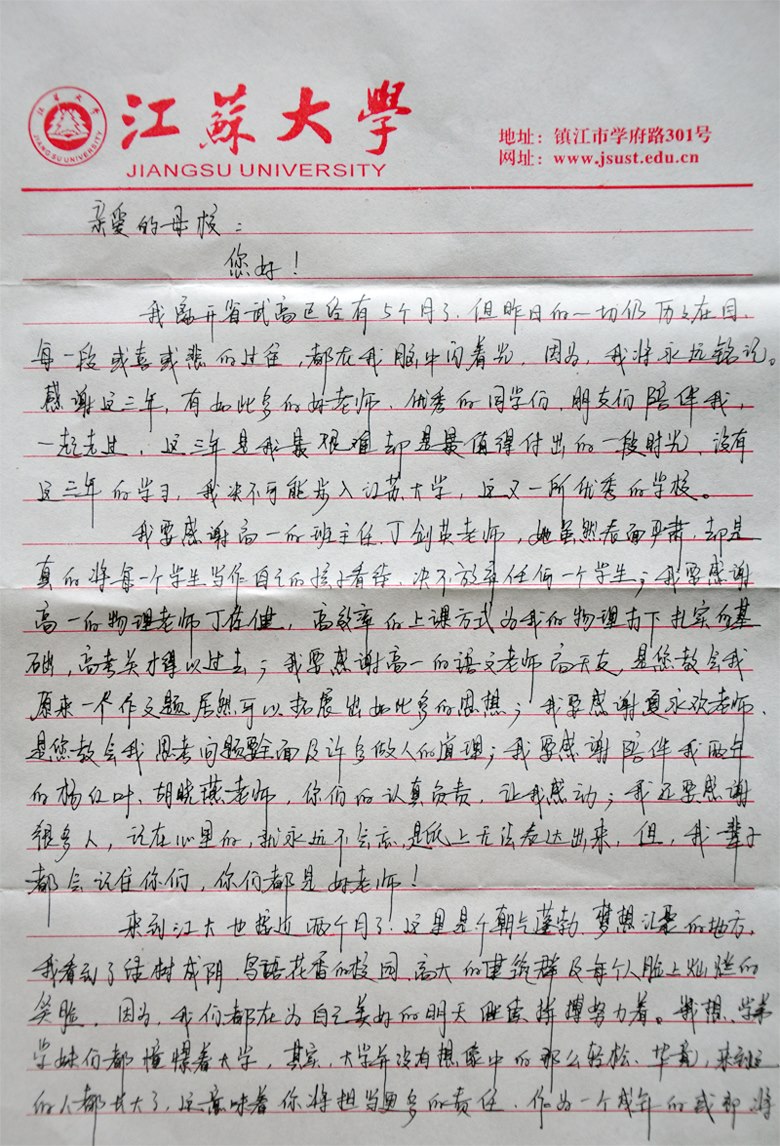 江苏大学
JIANGSU UNIVERSITY
江蘇大學
JIANGSU UNIVERSITY
地址：镇江市学府路301号
网址：www.jsust.edu.cn
亲爱的母校：
您好！
我离开省武高已经有5个月了，但昨日的一切仍历历在目，
每一段或喜或悲的过往，都在我脑中闪着光，因为，我将永远铭记。
感谢这三年，有如此多的好老师、优秀的同学们、朋友们陪伴我，
一起走过，这三年是我最艰难却是最值得付出的一段时光，没有
这三年的学习，我决不可能步入江苏大学，这又一所优秀的学校。
我要感谢高一的班主任丁剑英老师，她虽然表面严肃，却是
真的将每一个学生当作自己的孩子看待，决不放弃任何一个学生；我要感谢
高一的物理老师丁佐健，高效率的上课方式为我的物理打下扎实的基
础，高考关才得以过去；我要感谢高一的语文老师高天友，是您教会我
原来一个作文题居然可以拓展出如此多的思想；我要感谢夏永欢老师，
是您教会我思考问题要全面及许多做人的道理；我要感谢陪伴我两年
的杨红叶、胡晓燕老师，你们的认真负责，让我感动；我还要感谢
很多人，记在心里的，就永远不会忘，是纸上无法表达出来，但，我辈子
都会记住你们，你们都是好老师！
来到江大也接近两个月了，这里是个朝气蓬勃、梦想汇聚的地方，
我看到了绿树成阴、鸟语花香的校园、高大的建筑群及每个人脸上灿烂的
笑脸，因为，我们都在为自己美好的明天继续拼搏努力着。我想，学弟
学妹们都憧憬着大学，其实，大学并没有想象中的那么轻松、华丽，来到这
的人都长大了，这意味着你将担当更多的责任，作为一个成年的或即将